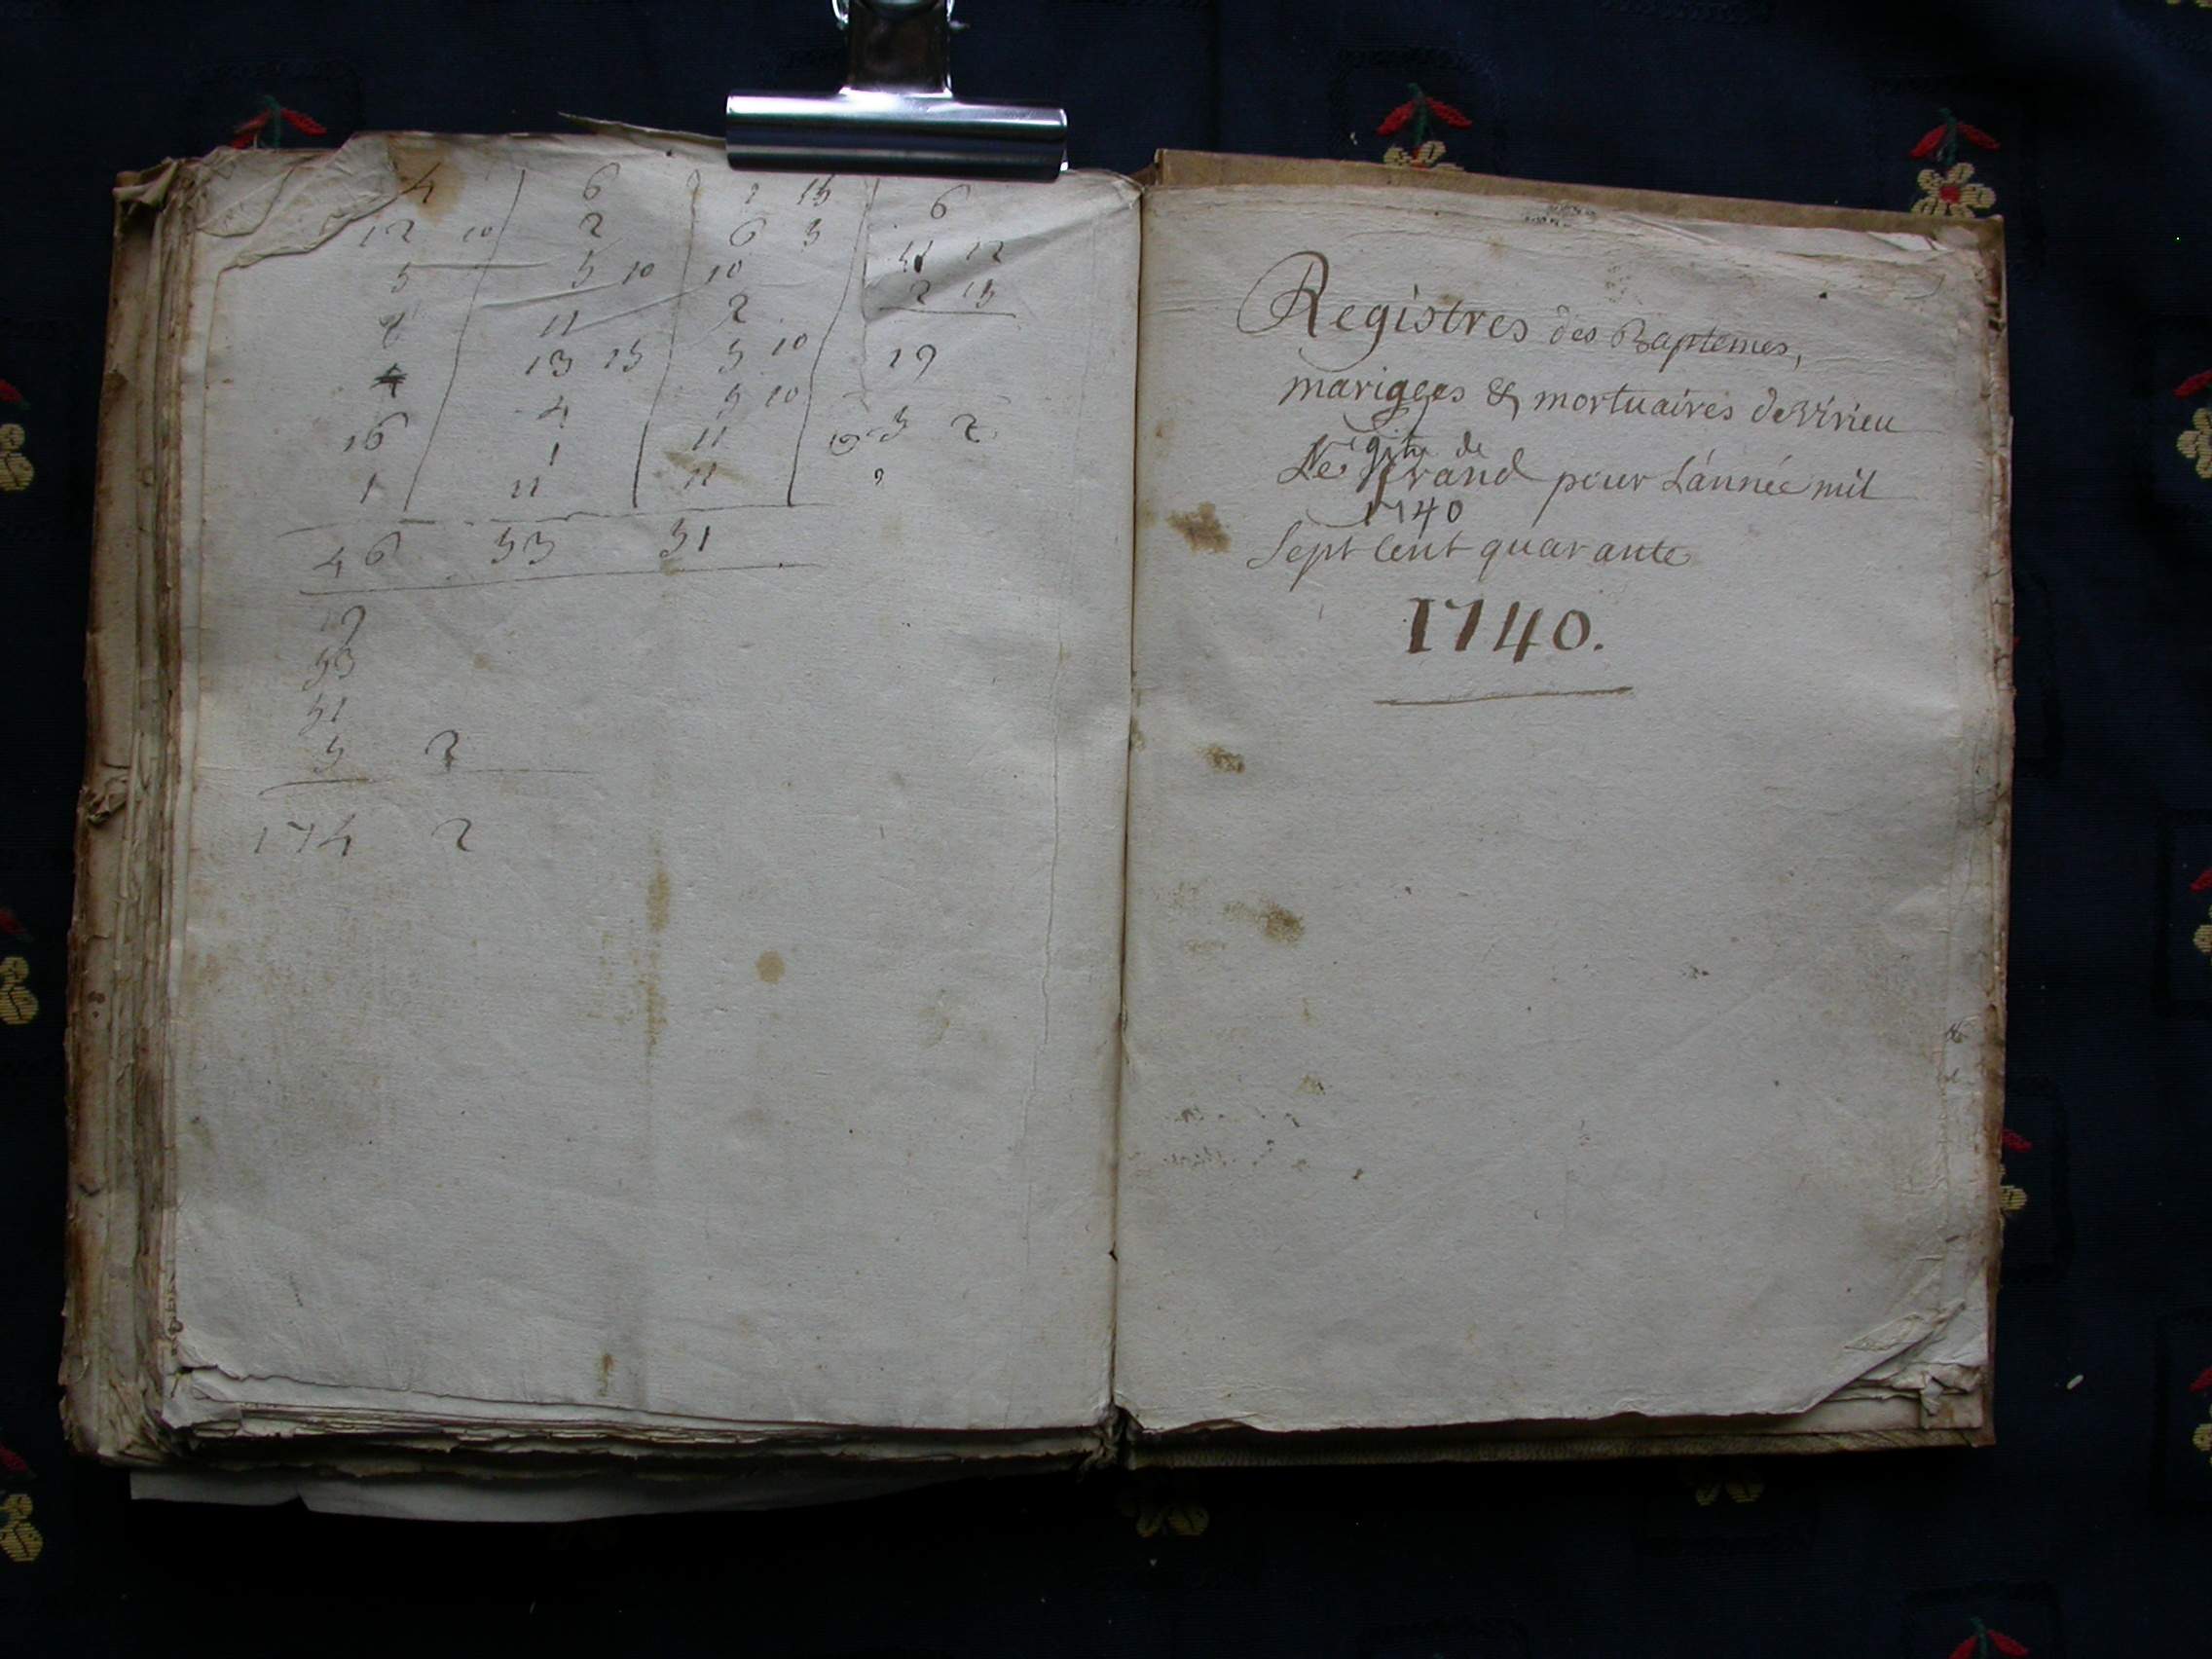 4 | 6 | 1 15 | 6
12 10 | 2 | 6 5 | 11 12
5 | 5 10 | 10 | 2 15
11 | 2
13 15 | 5 10 | 19
4 | 5 10
16 | 1 | 11 | 5 2
1 | 11 | 11
46 53 51
19
53
51
5 2
174 2
Registres des Baptemes,
mariages & mortuaires de Virieu
Le Grand pour L'année mil
1740
Sept Cent quarante
1740.